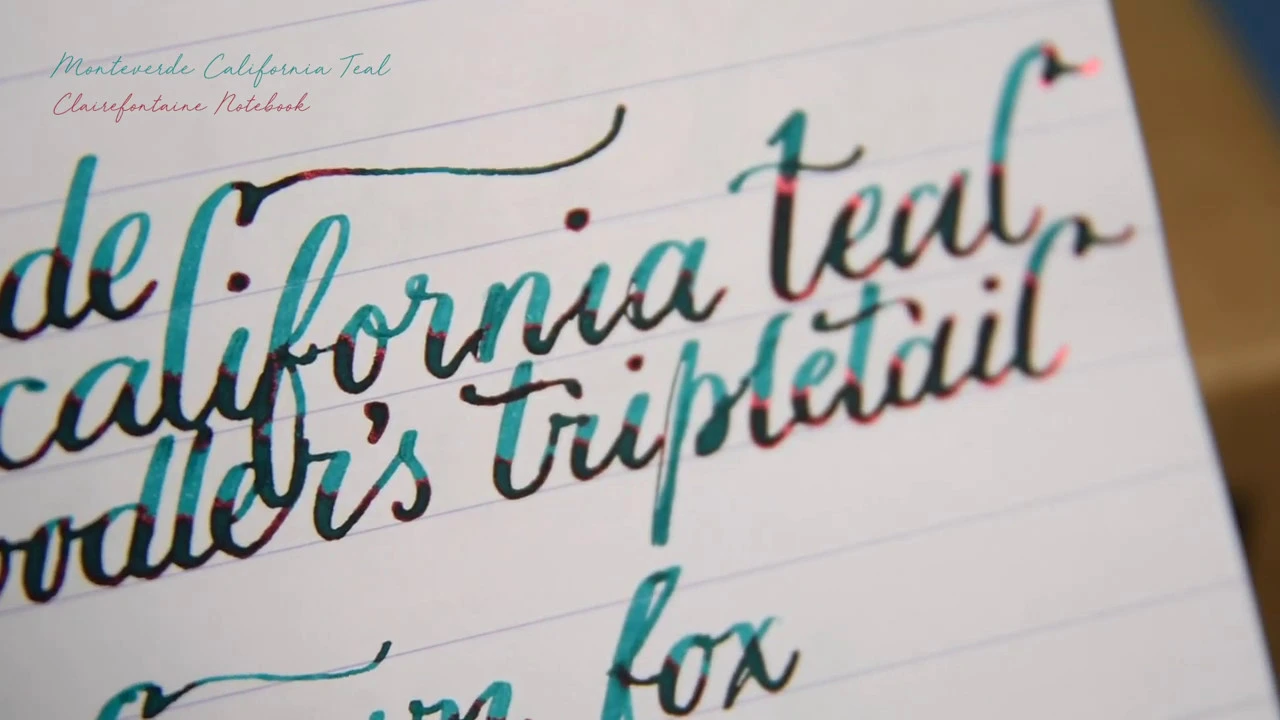 Monteverde California Teal
Clairefontaine Notebook
de
california teal
oodler's tripletail
fox